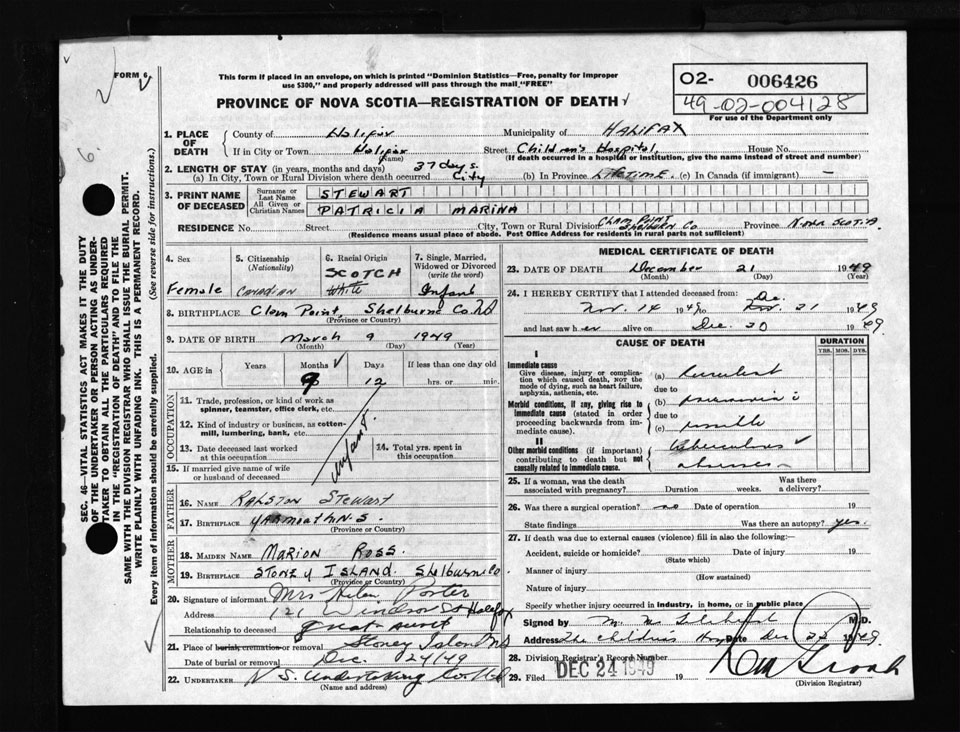 FORM 6
This form if placed in an envelope, on which is printed "Dominion Statistics—Free, penalty for improper
use $300," and properly addressed will pass through the mail "FREE"
PROVINCE OF NOVA SCOTIA—REGISTRATION OF DEATH
O2- 006426
49-02-004128
For use of the Department only
6.
SEC. 46—VITAL STATISTICS ACT MAKES IT THE DUTY
OF THE UNDERTAKER OR PERSON ACTING AS UNDER-
TAKER TO OBTAIN ALL THE PARTICULARS REQUIRED
IN THE "REGISTRATION OF DEATH" AND TO FILE THE
SAME WITH THE DIVISION REGISTRAR WHO SHALL ISSUE THE BURIAL PERMIT.
WRITE PLAINLY WITH UNFADING INK. THIS IS A PERMANENT RECORD.
Every item of information should be carefully supplied. (See reverse side for instructions.)
1. PLACE OF DEATH County of Halifax Municipality of HALIFAX
If in City or Town Halifax Street Children's Hospital, House No.
(Name) (If death occurred in a hospital or institution, give the name instead of street and number)
2. LENGTH OF STAY (in years, months and days) 37 days
(a) In City, Town or Rural Division where death occurred City (b) In Province LIFETIME. (c) In Canada (if immigrant) —
3. PRINT NAME OF DECEASED Surname or Last Name STEWART
All Given or Christian Names PATRICIA MARINA
RESIDENCE No. Street City, Town or Rural Division Clam Point Shelburn Co Province Nova Scotia
(Residence means usual place of abode. Post Office Address for residents in rural parts not sufficient)
4. Sex Female
5. Citizenship (Nationality) Canadian
6. Racial Origin SCOTCH White
7. Single, Married, Widowed or Divorced (write the word) Infant
8. BIRTHPLACE Clam Point, Shelburne Co. NS
(Province or Country)
9. DATE OF BIRTH March 9 1949
(Month) (Day) (Year)
10. AGE in Years Months 9 Days 12 If less than one day old hrs. or min.
OCCUPATION
11. Trade, profession, or kind of work as spinner, teamster, office clerk, etc.
12. Kind of industry or business, as cotten-mill, lumbering, bank, etc.
infant
13. Date deceased last worked at this occupation
14. Total yrs. spent in this occupation
15. If married give name of wife or husband of deceased
FATHER
16. NAME RALSTON STEWART
17. BIRTHPLACE YARMOUTH N.S.
(Province or Country)
MOTHER
18. MAIDEN NAME MARION ROSS.
19. BIRTHPLACE STONEY ISLAND. Shelburne Co
(Province or Country)
20. Signature of informant Mrs Helen Porter
Address 121 Windsor St Halifax
Relationship to deceased great aunt
21. Place of burial, cremation or removal Stoney Island NS
Date of burial or removal Dec. 24/49
22. UNDERTAKER N S. Undertaking Co Ltd
(Name and address)
MEDICAL CERTIFICATE OF DEATH
23. DATE OF DEATH December 21 1949
(Month) (Day)
24. I HEREBY CERTIFY that I attended deceased from:
Nov. 14 1949 to Dec. 21 1949
and last saw her alive on Dec. 20 1949.
CAUSE OF DEATH DURATION
YRS. MOS. DYS.
I
Immediate cause
Give disease, injury or complication which caused death, NOT the mode of dying, such as heart failure, asphyxia, asthenia, etc.
(a) purulent
due to
Morbid conditions, if any, giving rise to immediate cause (stated in order proceeding backwards from immediate cause).
(b) pneumonia
due to
(c) possible
II
Other morbid conditions (if important) contributing to death but not causally related to immediate cause.
tuberculous
abscesses
25. If a woman, was the death associated with pregnancy? Duration weeks. Was there a delivery?
26. Was there a surgical operation? no Date of operation 19
State findings Was there an autopsy? yes.
27. If death was due to external causes (violence) fill in also the following:—
Accident, suicide or homicide? Date of injury 19
(State which)
Manner of injury
(How sustained)
Nature of injury
Specify whether injury occurred in industry, in home, or in public place
Signed by M.D.
Address The Children's Hosp Date Dec 22 1949
28. Division Registrar's Record Number
29. Filed DEC 24 1949 19
(Division Registrar)